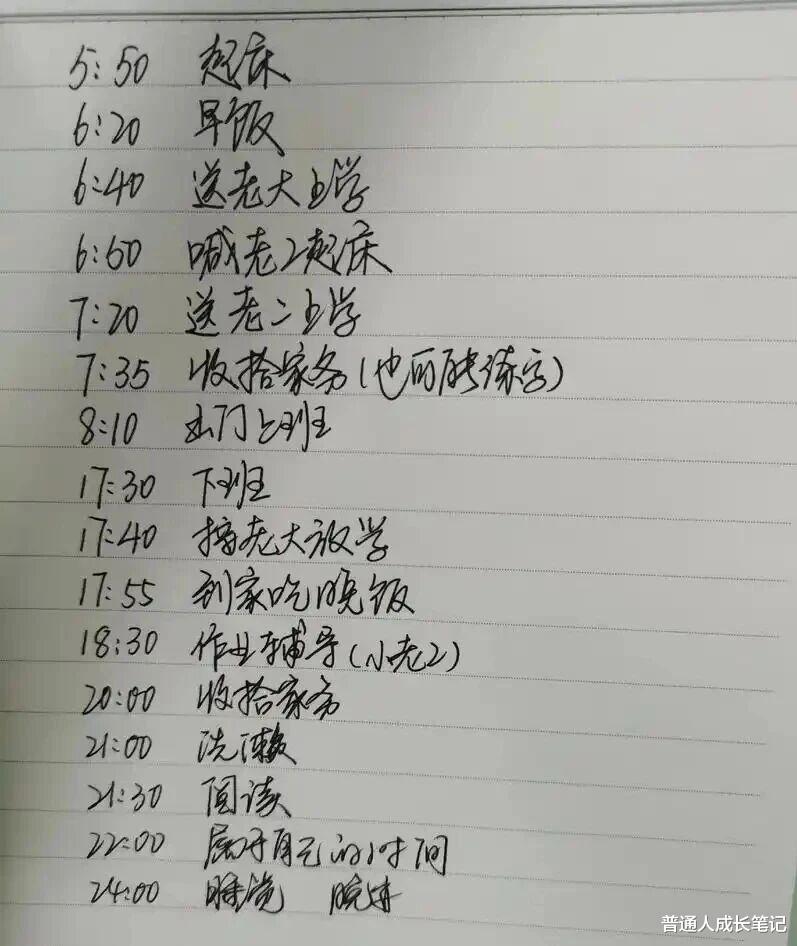 5:50 起床
6:20 早饭
6:40 送老大上学
6:60 喊老2起床
7:20 送老二上学
7:35 收拾家务(也可能练字)
8:10 出门上班
17:30 下班
17:40 接老大放学
17:55 到家吃晚饭
18:30 作业辅导(小老2)
20:00 收拾家务
21:00 洗漱
21:30 阅读
22:00 属于自己的时间
24:00 睡觉 晚安
普通人成长笔记